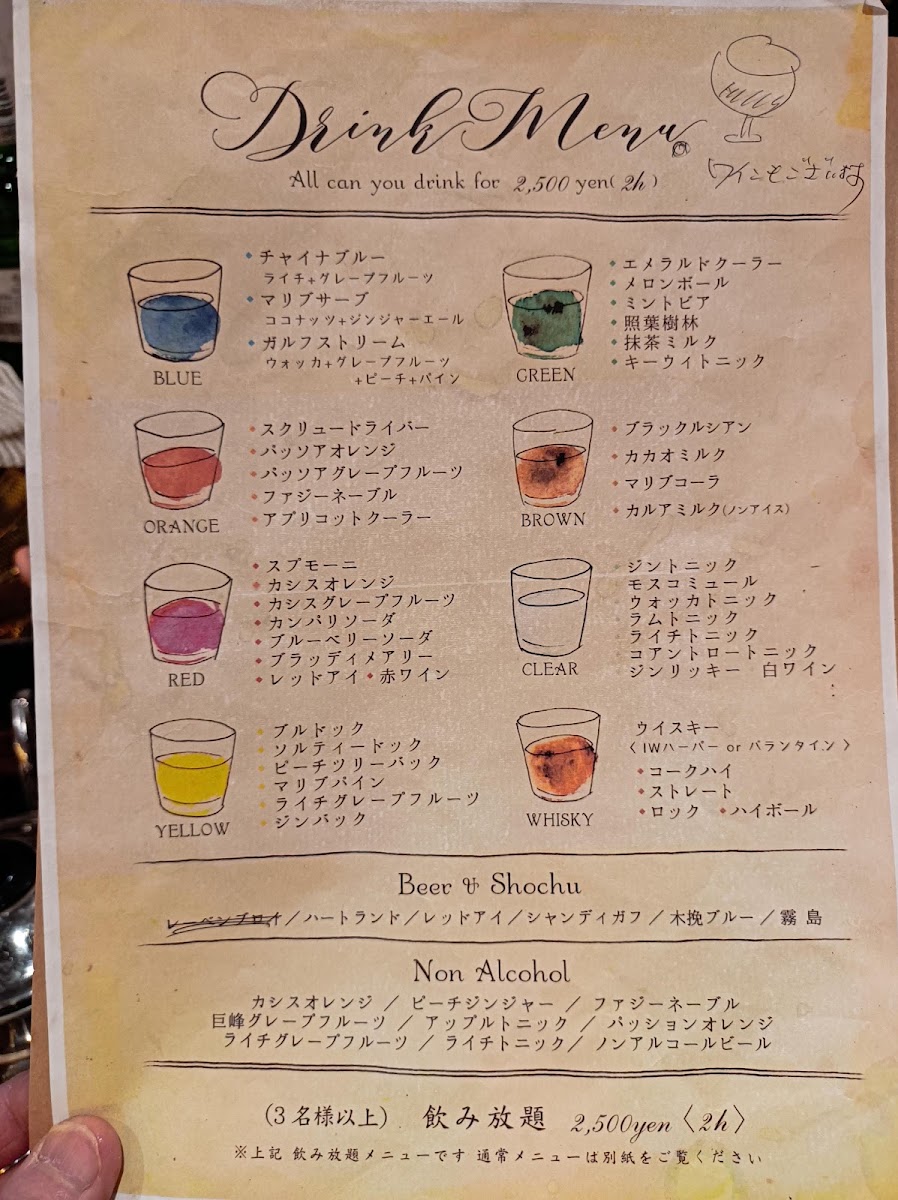 Drink Menu
ワインもございます
All can you drink for 2,500 yen(2h)
・チャイナブルー
ライチ+グレープフルーツ
・マリブサーブ
ココナッツ+ジンジャーエール
・ガルフストリーム
ウォッカ+グレープフルーツ
+ピーチ+パイン
BLUE
・エメラルドクーラー
・メロンボール
・ミントビア
・照葉樹林
・抹茶ミルク
・キーウイトニック
GREEN
・スクリュードライバー
・パッソアオレンジ
・パッソアグレープフルーツ
・ファジーネーブル
・アプリコットクーラー
ORANGE
・ブラックルシアン
・カカオミルク
・マリブコーラ
・カルアミルク(ノンアイス)
BROWN
・スプモーニ
・カシスオレンジ
・カシスグレープフルーツ
・カンパリソーダ
・ブルーベリーソーダ
・ブラッディメアリー
・レッドアイ ・赤ワイン
RED
ジントニック
モスコミュール
ウォッカトニック
ラムトニック
ライチトニック
コアントロートニック
ジンリッキー 白ワイン
CLEAR
・ブルドック
・ソルティードック
・ピーチツリーバック
・マリブパイン
・ライチグレープフルーツ
・ジンバック
YELLOW
ウイスキー
〈 IWハーパー or バランタイン 〉
・コークハイ
・ストレート
・ロック ・ハイボール
WHISKY
Beer & Shochu
レーベンブロイ/ハートランド/レッドアイ/シャンディガフ/木挽ブルー/霧島
Non Alcohol
カシスオレンジ / ピーチジンジャー / ファジーネーブル
巨峰グレープフルーツ / アップルトニック / パッションオレンジ
ライチグレープフルーツ / ライチトニック/ ノンアルコールビール
(3名様以上) 飲み放題 2,500yen〈2h〉
※上記 飲み放題メニューです 通常メニューは別紙をご覧ください